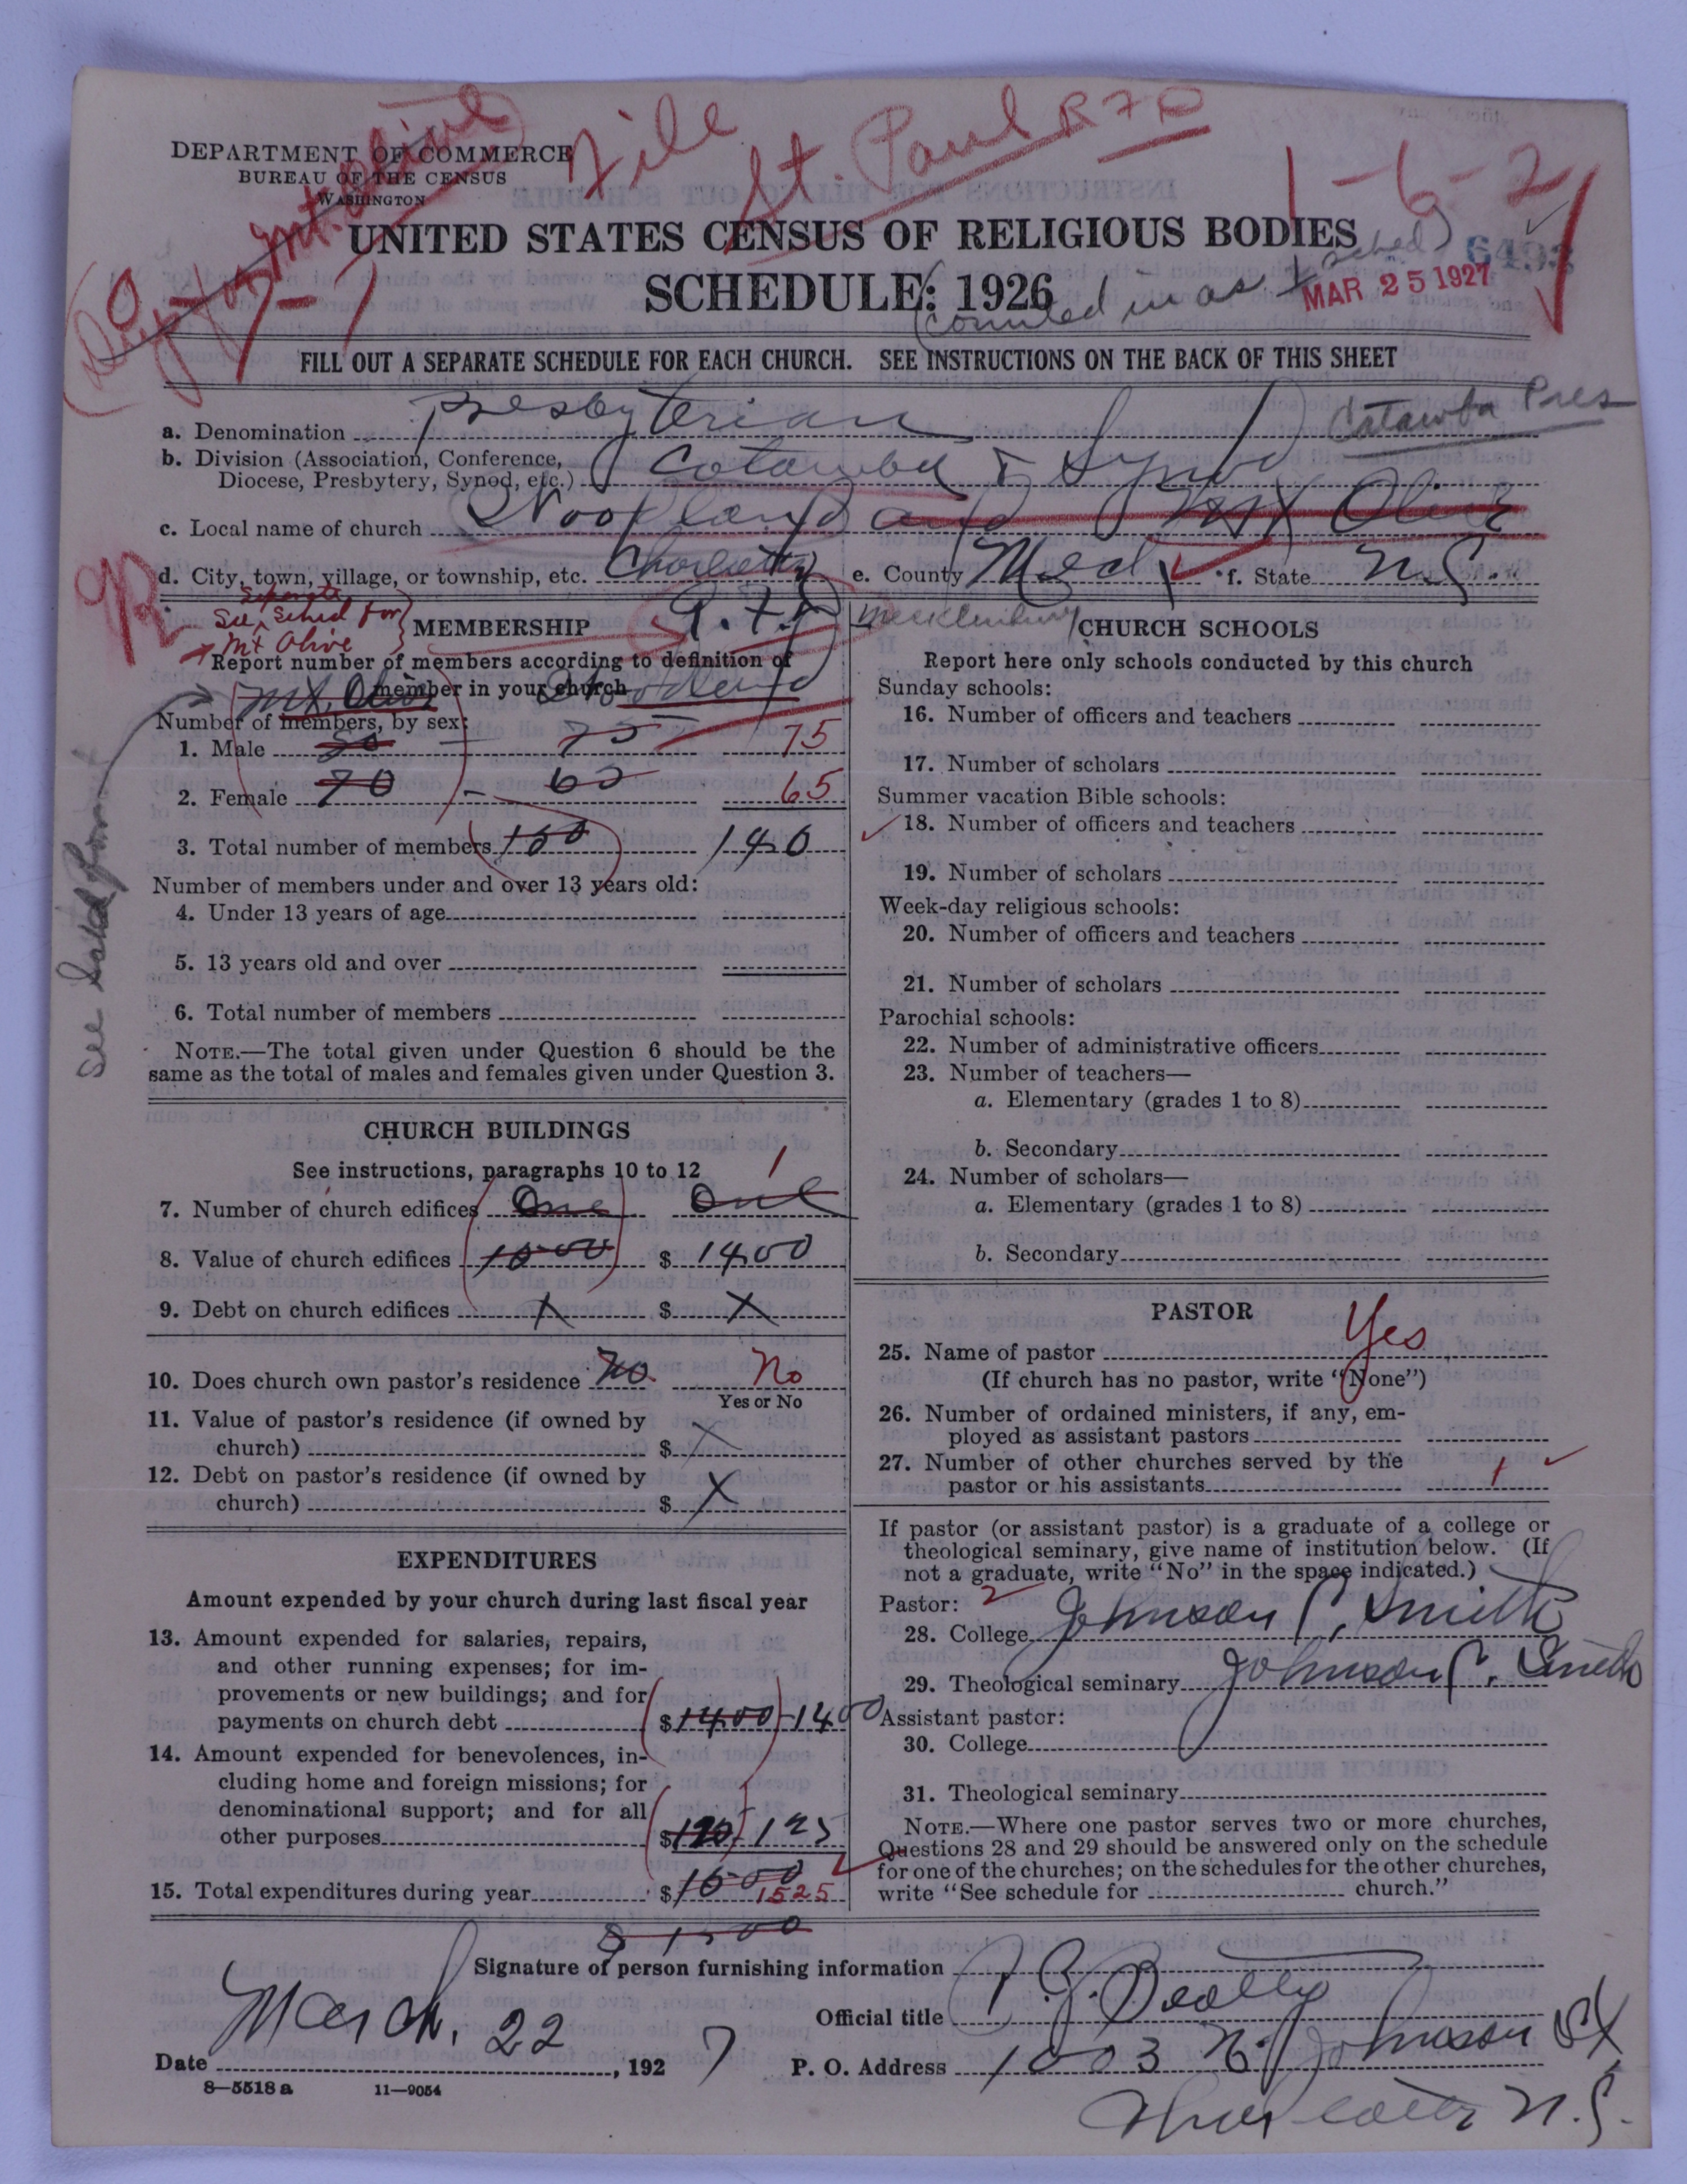 DEPARTMENT OF COMMERCE
BUREAU OF THE CENSUS
WASHINGTON
File
St. Paul R F D
Mt. Olive
1-6-2
UNITED STATES CENSUS OF RELIGIOUS BODIES
SCHEDULE: 1926
(Counted in as 1 sched)
6493
MAR 25 1927
FILL OUT A SEPARATE SCHEDULE FOR EACH CHURCH. SEE INSTRUCTIONS ON THE BACK OF THIS SHEET
a. Denomination Presbyterian
Catawba Pres
b. Division (Association, Conference,
Diocese, Presbytery, Synod, etc.) Catawba Synod
c. Local name of church Woodland and Mt Olive
d. City, town, village, or township, etc. Charlotte
e. County Meck
f. State N.C.
Mecklenburg
See Separate Sched for
Mt Olive
MEMBERSHIP
Report number of members according to definition of
member in your church
Mt. Olive Woodland
Number of members, by sex:
1. Male 80 - 75 75
2. Female 70 - 65 65
3. Total number of members 150 140
Number of members under and over 13 years old:
4. Under 13 years of age
5. 13 years old and over
6. Total number of members
NOTE.—The total given under Question 6 should be the
same as the total of males and females given under Question 3.
CHURCH BUILDINGS
See instructions, paragraphs 10 to 12
1
7. Number of church edifices One One
8. Value of church edifices $ 1400
9. Debt on church edifices X $ X
10. Does church own pastor's residence No. No
Yes or No
11. Value of pastor's residence (if owned by
church) $ X
12. Debt on pastor's residence (if owned by
church) $ X
EXPENDITURES
Amount expended by your church during last fiscal year
13. Amount expended for salaries, repairs,
and other running expenses; for im-
provements or new buildings; and for
payments on church debt $1400 1400
14. Amount expended for benevolences, in-
cluding home and foreign missions; for
denominational support; and for all
other purposes $120 125
15. Total expenditures during year $ 1525
CHURCH SCHOOLS
Report here only schools conducted by this church
Sunday schools:
16. Number of officers and teachers
17. Number of scholars
Summer vacation Bible schools:
18. Number of officers and teachers
19. Number of scholars
Week-day religious schools:
20. Number of officers and teachers
21. Number of scholars
Parochial schools:
22. Number of administrative officers
23. Number of teachers—
a. Elementary (grades 1 to 8)
b. Secondary
24. Number of scholars—
a. Elementary (grades 1 to 8)
b. Secondary
PASTOR
25. Name of pastor Yes
(If church has no pastor, write "None")
26. Number of ordained ministers, if any, em-
ployed as assistant pastors
27. Number of other churches served by the
pastor or his assistants 1
If pastor (or assistant pastor) is a graduate of a college or
theological seminary, give name of institution below. (If
not a graduate, write "No" in the space indicated.)
Pastor: 2
28. College Johnson C. Smith
29. Theological seminary Johnson C. Smith
Assistant pastor:
30. College
31. Theological seminary
NOTE.—Where one pastor serves two or more churches,
Questions 28 and 29 should be answered only on the schedule
for one of the churches; on the schedules for the other churches,
write "See schedule for church."
Signature of person furnishing information
Official title
Date March, 22, 1927
P. O. Address 1003 N. Johnson St
N.C.
8—5518 a 11—9054